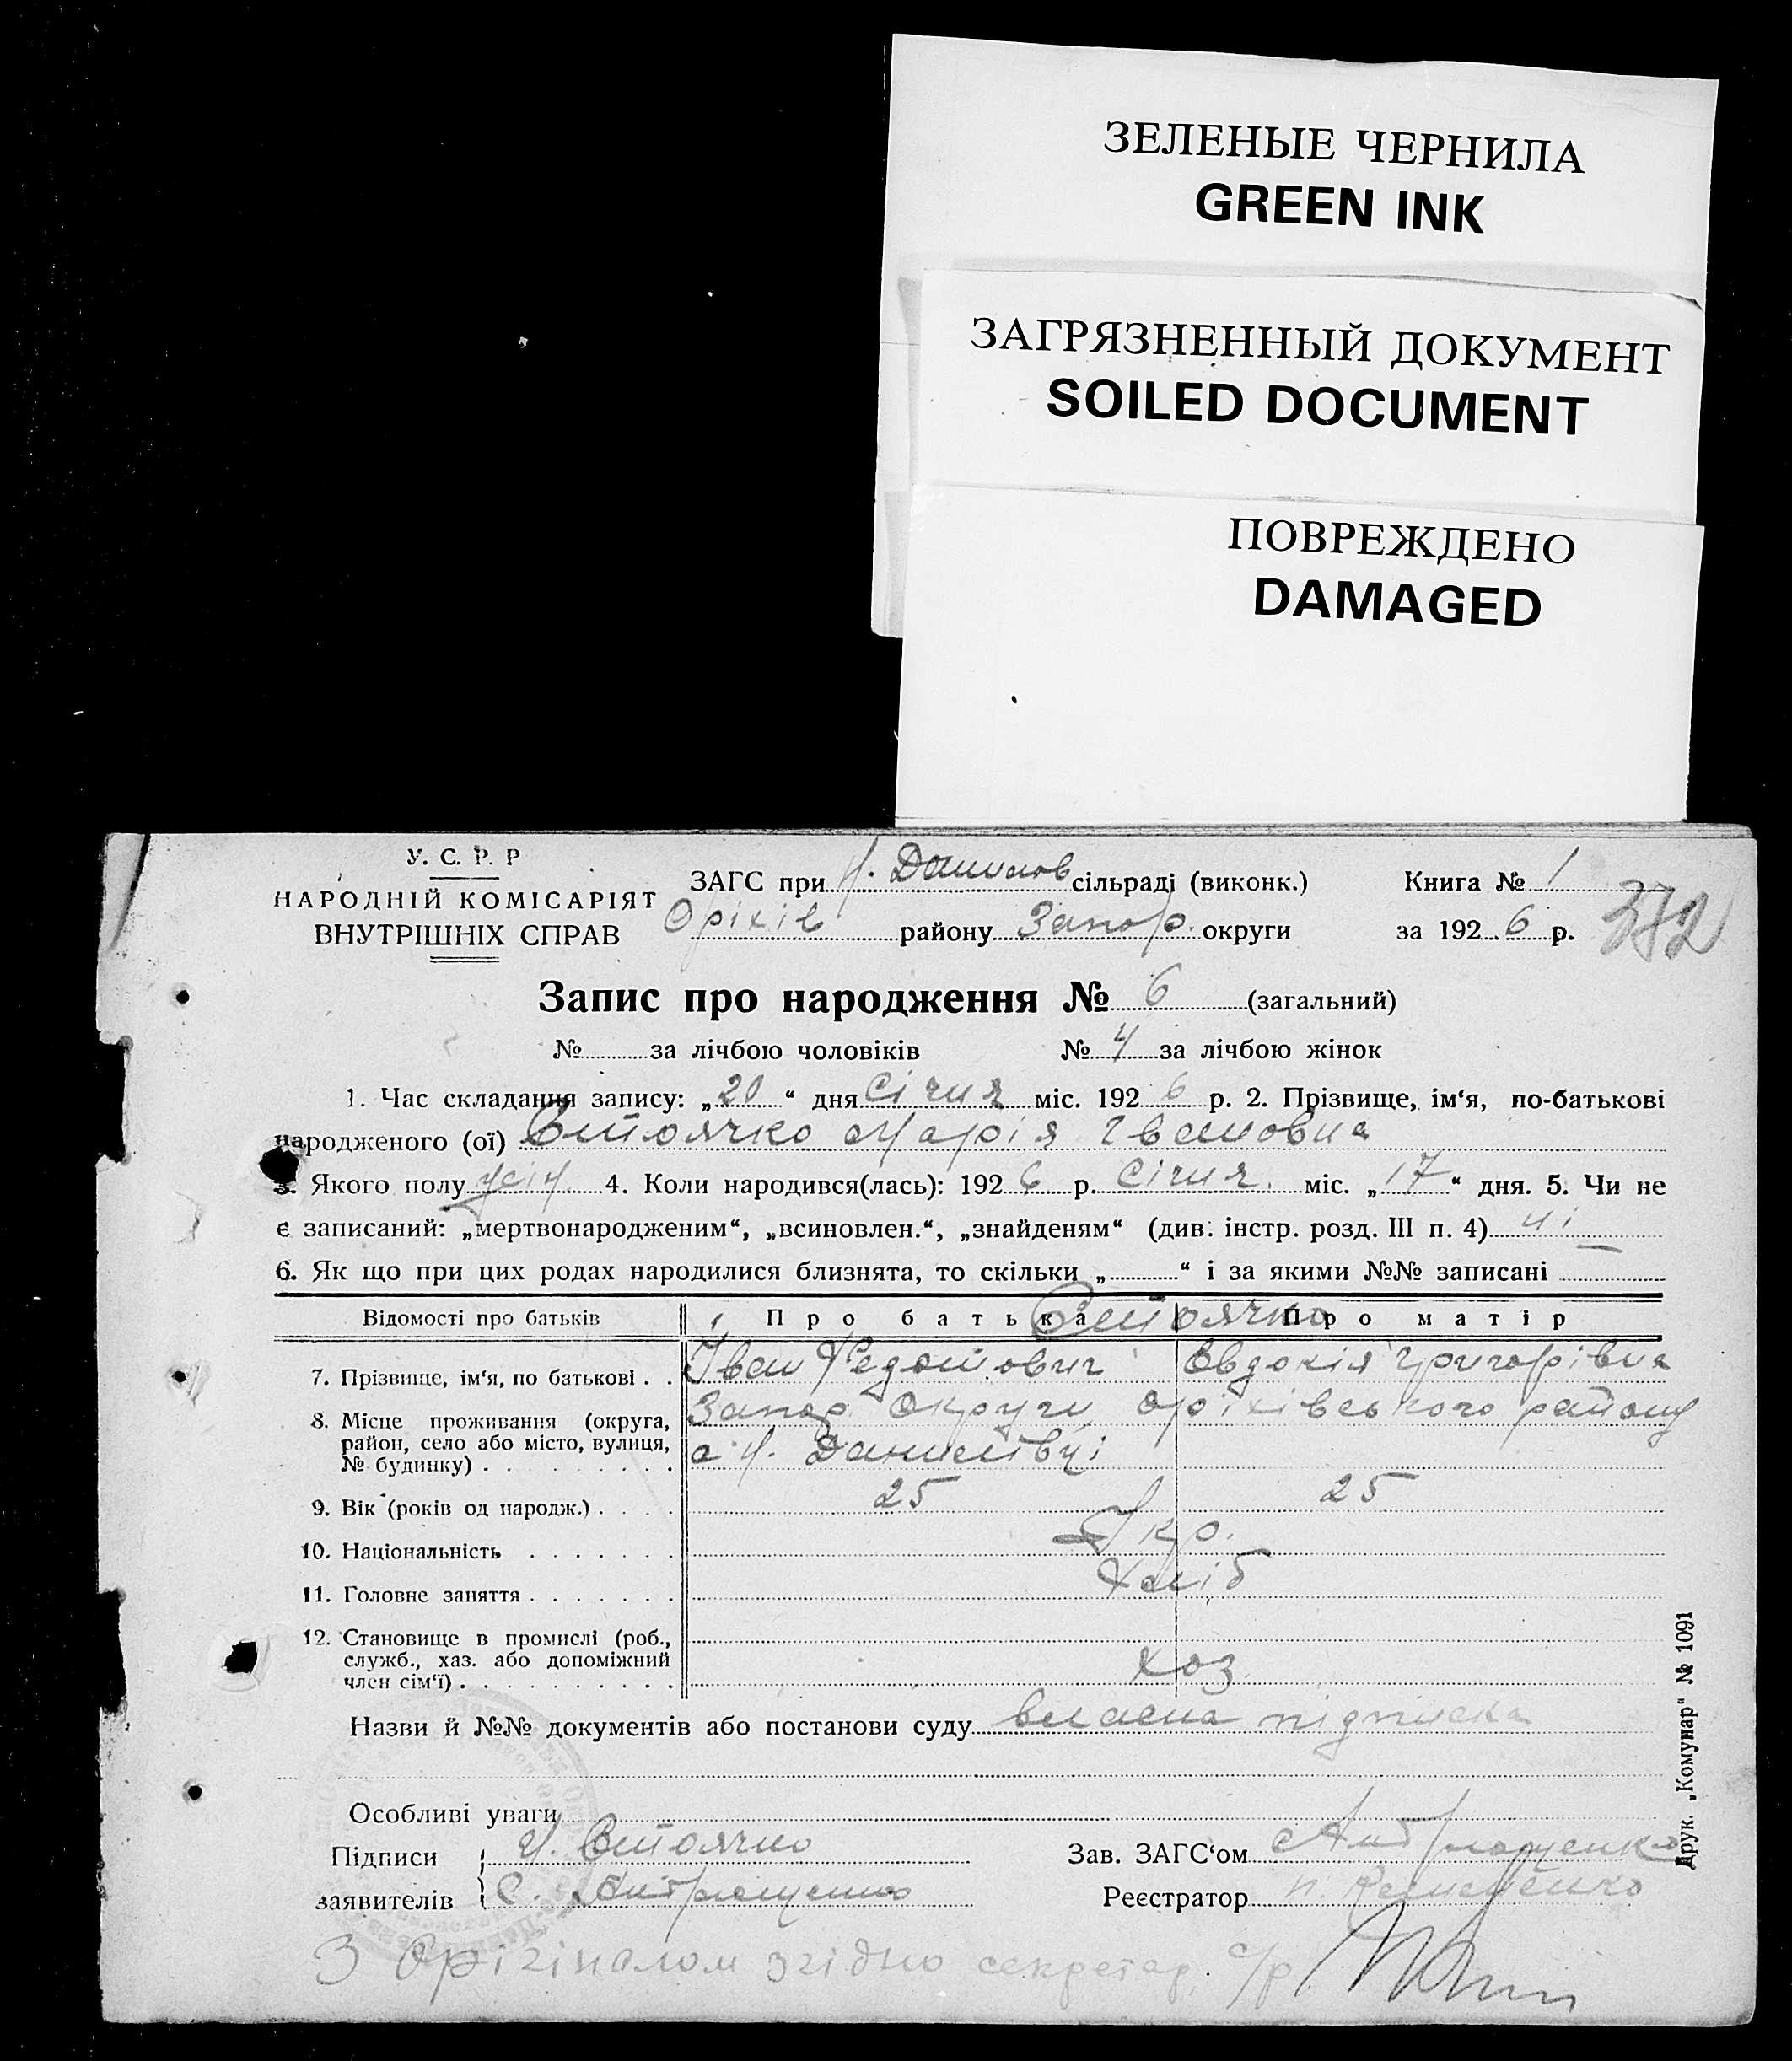 ЗЕЛЕНЫЕ ЧЕРНИЛА
GREEN INK
ЗАГРЯЗНЕННЫЙ ДОКУМЕНТ
SOILED DOCUMENT
ПОВРЕЖДЕНО
DAMAGED
У. С. Р. Р
НАРОДНІЙ КОМІСАРІЯТ
ВНУТРІШНІХ СПРАВ
ЗАГС при Н. Данилов сільраді (виконк.) Книга № 1
Оріхів району Запор. округи за 1926 р. 372
Запис про народження № 6 (загальний)
№ за лічбою чоловіків № 4 за лічбою жінок
1. Час складання запису: „20“ дня Січня міс. 1926 р. 2. Прізвище, ім‘я, по-батькові
народженого (ої) Стоячко Марія Івановна
3. Якого полу жін. 4. Коли народився(лась): 1926 р. Січня. міс. „17“ дня. 5. Чи не
є записаний: „мертвонародженим“, „всиновлен.“, „знайденям“ (див. інстр. розд. III п. 4) ні
6. Як що при цих родах народилися близнята, то скільки „ “ і за якими №№ записані
Відомості про батьків Про батька Про матір
Стоячко
7. Прізвище, ім‘я, по батькові . . Іван Федотович Овдокія Григорівна
8. Місце проживання (округа, Запор. Округи Оріхівського району
район, село або місто, вулиця, с. Н. Данилівці
№ будинку)
9. Вік (років од народж.) 25 25
10. Національність Укр.
11. Головне заняття Хліб
12. Становище в промислі (роб.,
служб., хаз. або допоміжний
член сім‘ї) хоз
Назви й №№ документів або постанови суду власна підписка
Особливі уваги
Підписи Стоячко Зав. ЗАГС‘ом Андрющенко
заявителів С. Андрющенко Реєстратор
З Орігіналом згідно секретар с/р
Друк. „Комунар“ № 1091